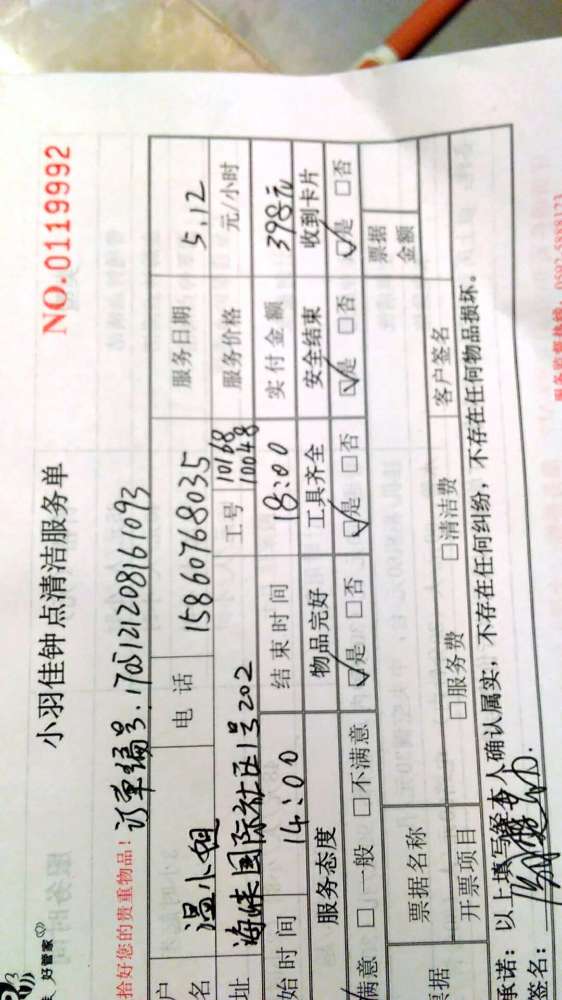 好管家
小羽佳钟点清洁服务单
NO.0119992
拾好您的贵重物品！ 订单编号：1705121208161093
户名 温小姐 电话 15860768035 服务日期 5.12
址 海峡国际社区1号202 工号 10168 10048 服务价格 元/小时
始时间 14:00 结束时间 18:00 实付金额 398元
服务态度 物品完好 工具齐全 安全结束 收到卡片
满意 □一般 □不满意 是 □否 是 □否 是 □否 是 □否
票据 票据名称 票据金额
开票项目 □服务费 □清洁费 客户签名
承诺：以上填写经本人确认属实，不存在任何纠纷，不存在任何物品损坏。
签名：